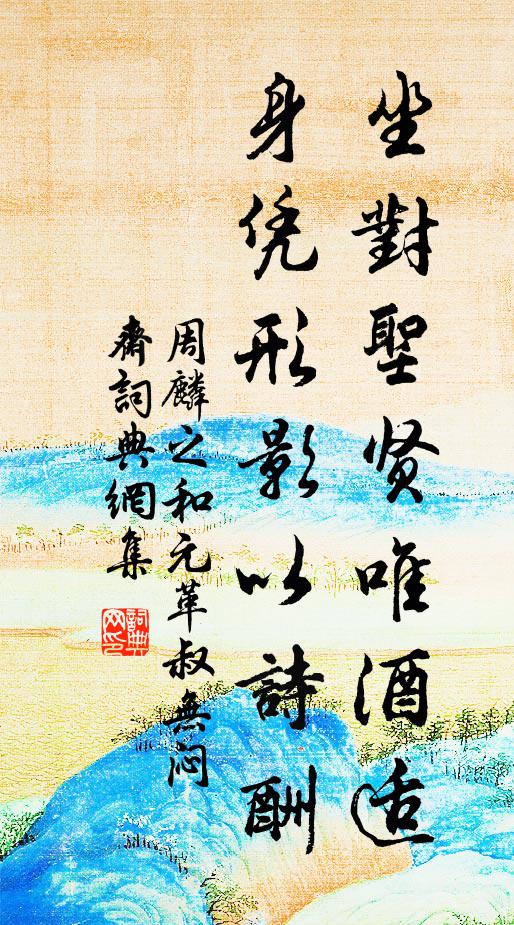 坐對聖贤唯酒适
身凭形影以詩酬
周麟之和元革叔無闷
齋詞典網集
詞典网印